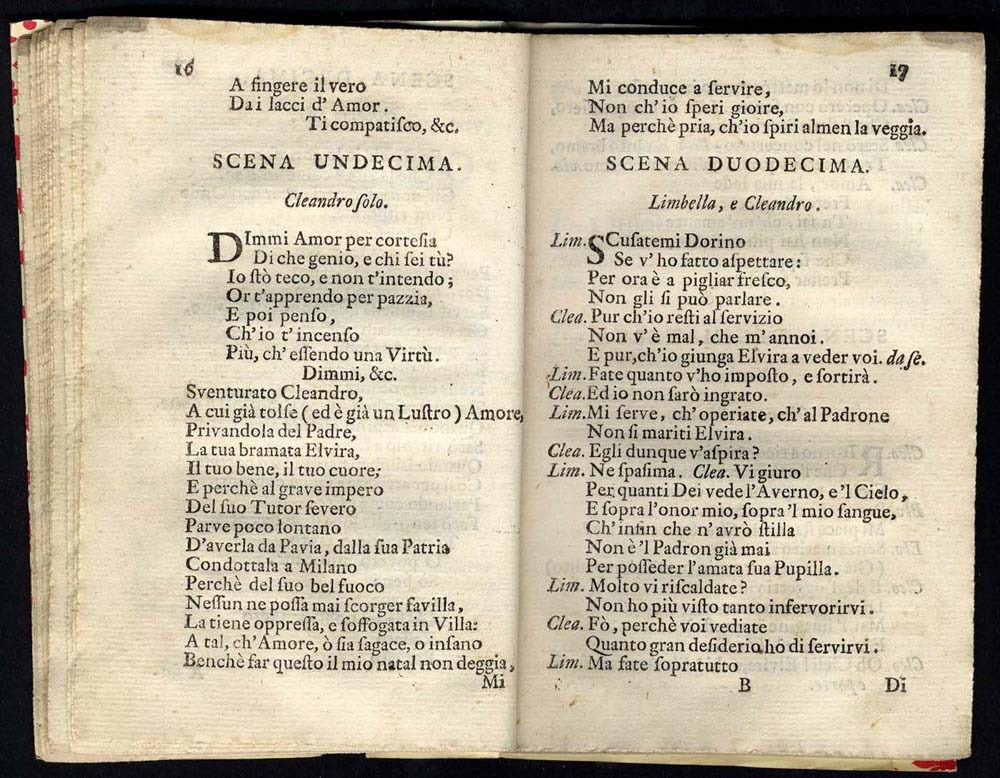 16
A fingere il vero
Dai lacci d' Amor.
Ti compatiſco, &c.
SCENA UNDECIMA.
Cleandro ſolo.
DImmi Amor per corteſia
Di che genio, e chi ſei tù?
Io ſtò teco, e non t'intendo;
Or t'apprendo per pazzia,
E poi penſo,
Ch' io t' incenſo
Più, ch' eſſendo una Virtù.
Dimmi, &c.
Sventurato Cleandro,
A cui già tolſe (ed è già un Luſtro) Amore,
Privandola del Padre,
La tua bramata Elvira,
Il tuo bene, il tuo cuore;
E perchè al grave impero
Del ſuo Tutor ſevero
Parve poco lontano
D'averla da Pavia, dalla ſua Patria
Condottala a Milano
Perchè del ſuo bel fuoco
Neſſun ne poſſa mai ſcorger favilla,
La tiene oppreſſa, e ſoffogata in Villa:
A tal, ch'Amore, ò ſia ſagace, o inſano
Benchè far queſto il mio natal non deggia,
Mi
17
Mi conduce a ſervire,
Non ch' io ſperi gioire,
Ma perchè pria, ch'io ſpiri almen la veggia.
SCENA DUODECIMA.
Limbella, e Cleandro.
Lim. SCuſatemi Dorino
Se v' ho fatto aſpettare:
Per ora è a pigliar freſco,
Non gli ſi può parlare.
Clea. Pur ch'io reſti al ſervizio
Non v' è mal, che m' annoi.
E pur, ch'io giunga Elvira a veder voi. da ſe.
Lim. Fate quanto v'ho impoſto, e ſortirà.
Clea. Ed io non ſarò ingrato.
Lim. Mi ſerve, ch' operiate, ch'al Padrone
Non ſi mariti Elvira.
Clea. Egli dunque v'aſpira?
Lim. Ne ſpaſima. Clea. Vi giuro
Per quanti Dei vede l'Averno, e 'l Cielo,
E ſopra l'onor mio, ſopra 'l mio ſangue,
Ch' infin che n' avrò ſtilla
Non è 'l Padron già mai
Per poſſeder l'amata ſua Pupilla.
Lim. Molto vi riſcaldate?
Non ho più viſto tanto infervorirvi.
Clea. Fò, perchè voi vediate
Quanto gran deſiderio ho di ſervirvi.
Lim. Ma fate ſopratutto
B Di